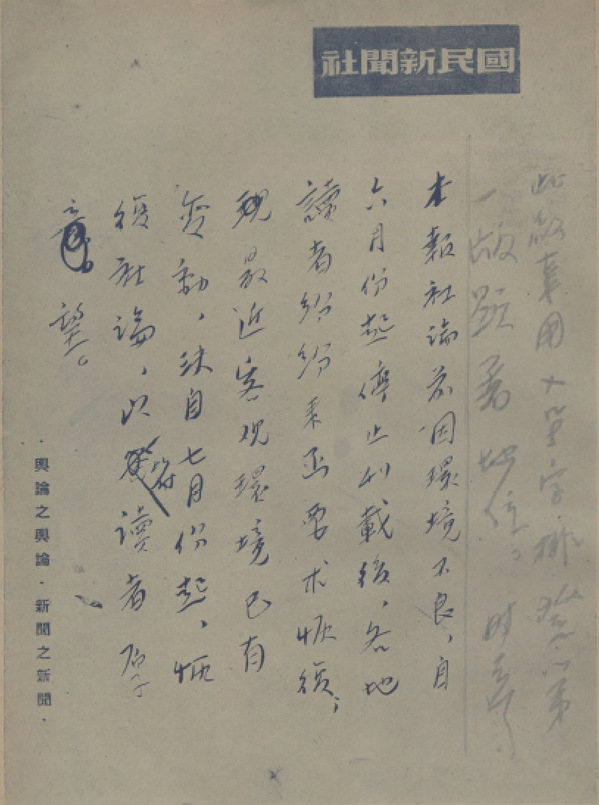 國民新聞社
此啟事用大單字排登以第
一版顯著地位。
本報社論前因環境不良,自
六月份起停止刊載後,各地
讀者紛紛來函要求恢復;
現最近客观環境已有
変動,決自七月份起,恢
復社論,以符讀者厚
望。
·輿論之輿論·新聞之新聞·